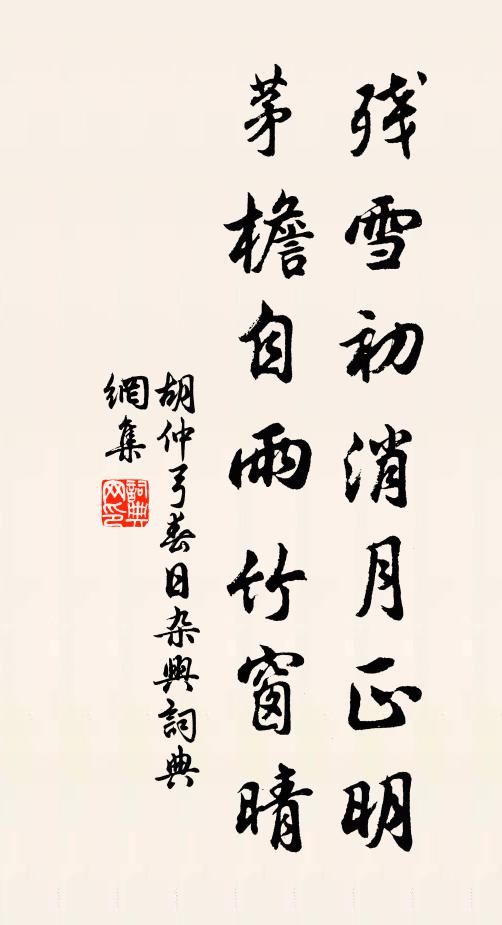 残雪初消月正明
茅檐自雨竹窗晴
胡仲弓春日杂興詞典
網集
詞典
网印